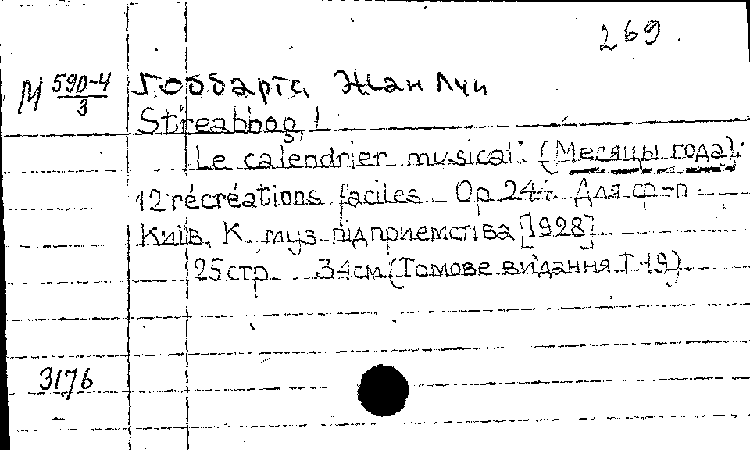 269.
М 590-4/3 Гоббартс Жан Луи
Streabbog, l
Le calendrier musical. (Месяцы года).
12 récréations faciles Op. 247. Для ф-п
Київ, К. муз. підприємства [1928]
25 стр. 34 см. (Томове видання. Т 19).
3176